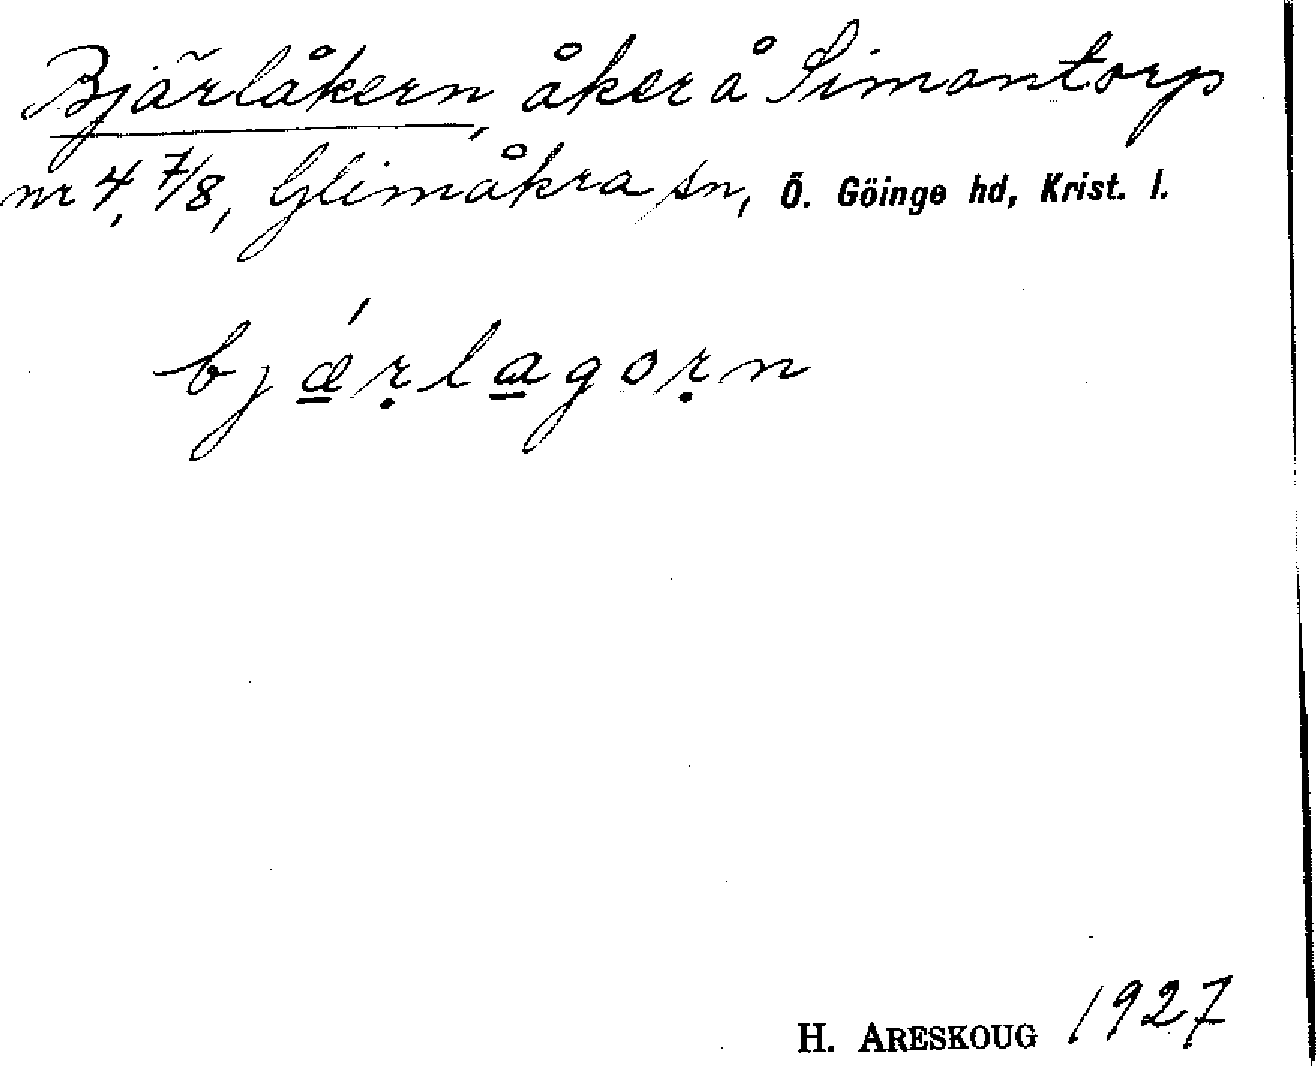 Bjärlåkern, åker å Simontorp
nr 4, 7/8, Glimåkra sn, Ö. Göinge hd, Krist. l.
bjǽ̱ṛla̱goṛn
H. ARESKOUG 1927